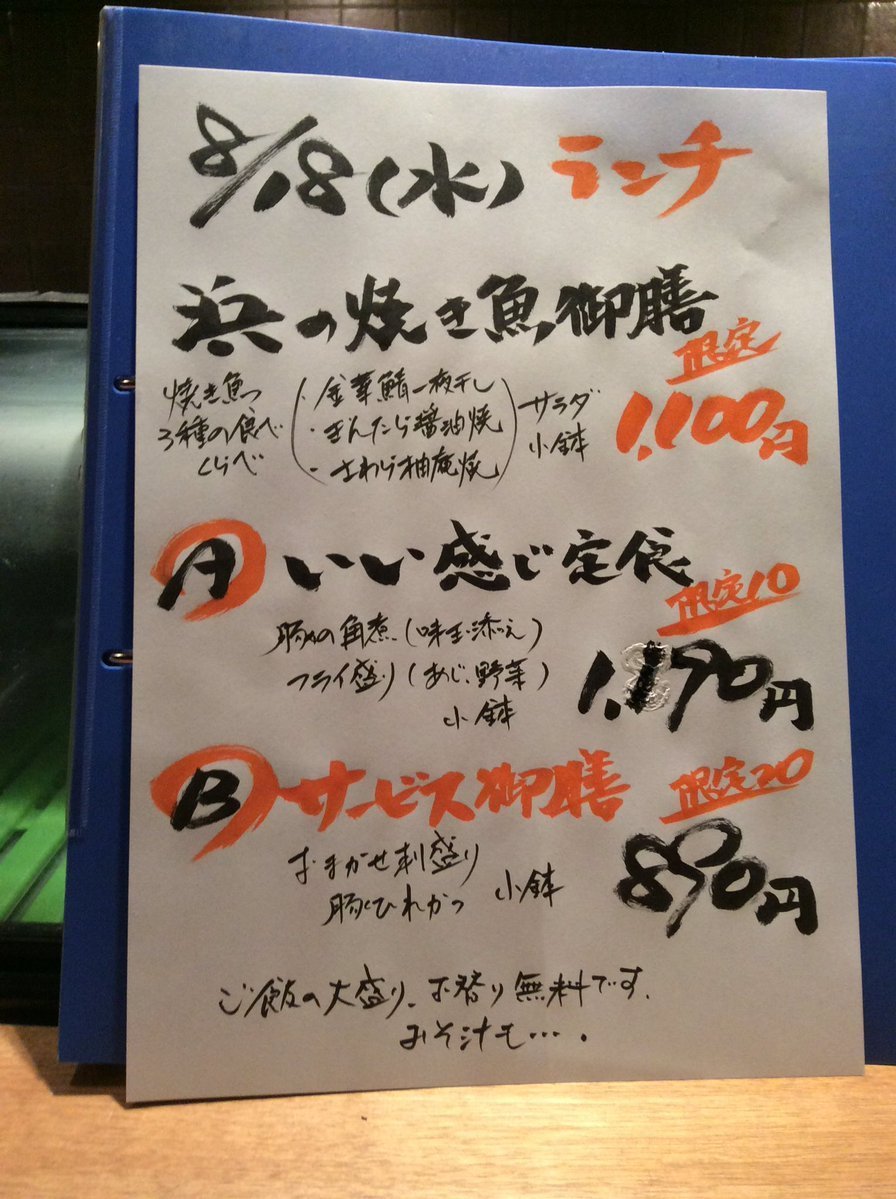 8/18(水) ランチ
浜の焼き魚御膳
限定
1,100円
焼き魚
3種の食べ
くらべ
・金華鯖一夜干し
・ぎんたら醤油焼
・さわら柚庵焼
サラダ
小鉢
A いい感じ定食
限定10
1,190円
豚の角煮(味玉添え)
フライ盛り(あじ、野菜)
小鉢
B サービス御膳
限定20
890円
おまかせ刺盛り
豚ひれかつ 小鉢
ご飯の大盛り、お替り無料です。
みそ汁も….